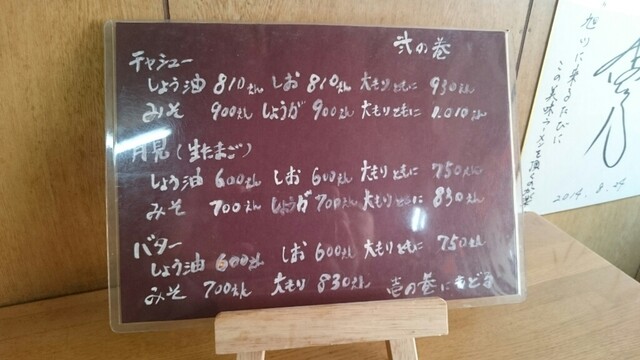 弐の巻
チャシュー
しょう油 810えん しお 810えん 大もりともに 930えん
みそ 900えん しょうが 900えん 大もりともに 1.010えん
月見(生たまご)
しょう油 600えん しお 600えん 大もりともに 750えん
みそ 700えん しょうが 700えん 大もりともに 830えん
バター
しょう油 600えん しお 600えん 大もりともに 750えん
みそ 700えん 大もり 830えん 壱の巻にもどる
旭川に来るたびに
この美味ラーメンを頂くのが
2014.8.24